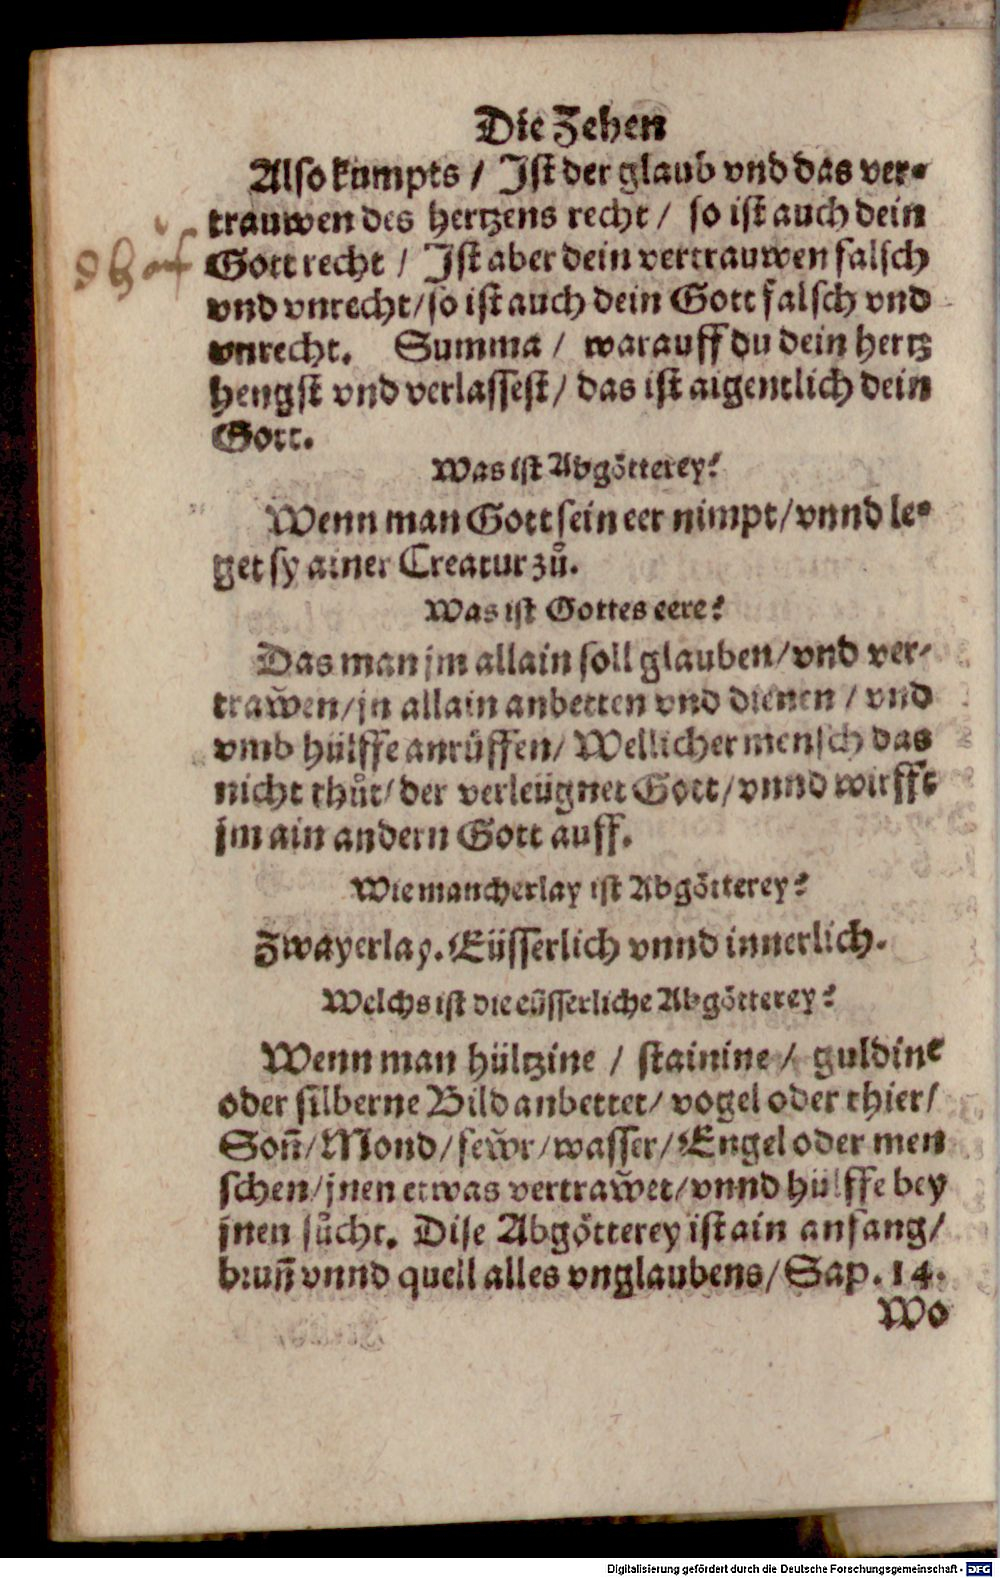 Die Zehen
Also kumpts / Ist der glaub vnd das ver-
trauwen des hertzens recht / so ist auch dein
Gott recht / Ist aber dein vertrauwen falsch
vnd vnrecht / so ist auch dein Gott falsch vnd
vnrecht. Summa / warauff du dein hertz
hengst vnd verlassest / das ist aigentlich dein
Gott.
Was ist Abgötterey?
Wenn man Gott sein eer nimpt / vnnd le-
get sy ainer Creatur zuͦ.
Was ist Gottes eere?
Das man jm allain soll glauben / vnd ver-
traw̃en / jn allain anbetten vnd dienen / vnd
vmb hülffe anrüffen / Wellicher mensch das
nicht thuͦt / der verleügnet Gott / vnnd wirfft
jm ain andern Gott auff.
Wie mancherlay ist Abgötterey?
Zwayerlay. Eüsserlich vnnd innerlich.
Welchs ist die eüsserliche Abgötterey?
Wenn man hültzine / stainine / guldine
oder silberne Bild anbettet / vogel oder thier /
Soñ / Mond / few̃r / wasser / Engel oder men
schen / jnen etwas vertraw̃et / vnnd hülffe bey
jnen suͦcht. Dise Abgötterey ist ain anfang /
bruñ vnnd quell alles vnglaubens / Sap. 14.
Wo
Digitalisierung gefördert durch die Deutsche Forschungsgemeinschaft - DFG